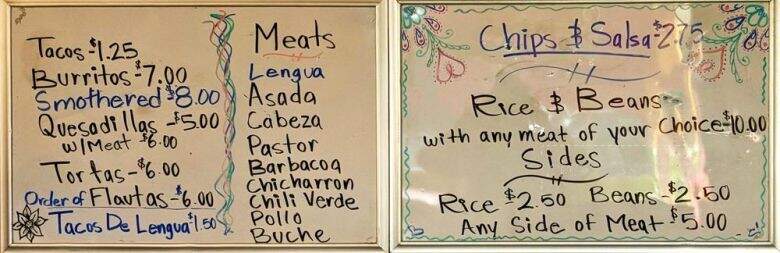 Tacos-$1.25
Burritos-$7.00
Smothered-$8.00
Quesadillas-$5.00
w/Meat $6.00
Tortas-$6.00
Order of Flautas-$6.00
Tacos De Lengua $1.50
Meats
Lengua
Asada
Cabeza
Pastor
Barbacoa
Chicharron
Chili Verde
Pollo
Buche
Chips & Salsa-$2.75
Rice & Beans
with any meat of your Choice-$10.00
Sides
Rice $2.50 Beans-$2.50
Any Side of Meat-$5.00